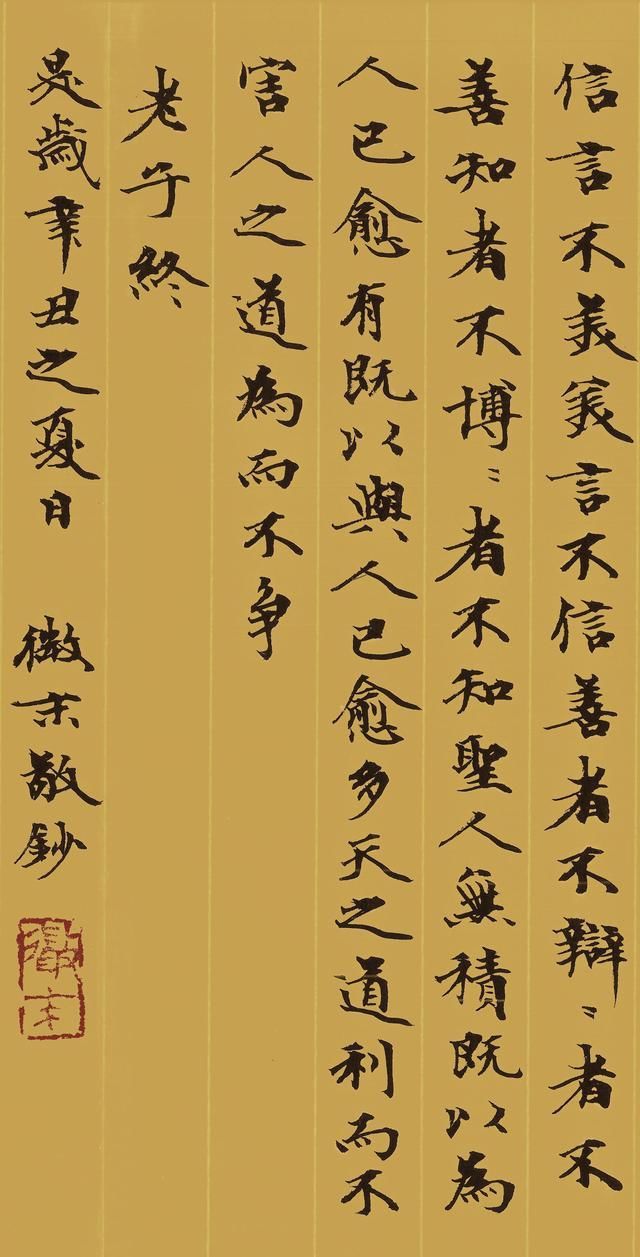 信言不羙羙言不信善者不辯〻者不
善知者不博〻者不知聖人無積既以為
人已愈有既以與人已愈多天之道利而不
害人之道為而不争
老子終
是歲辛丑之夏日 微末敬鈔
微末